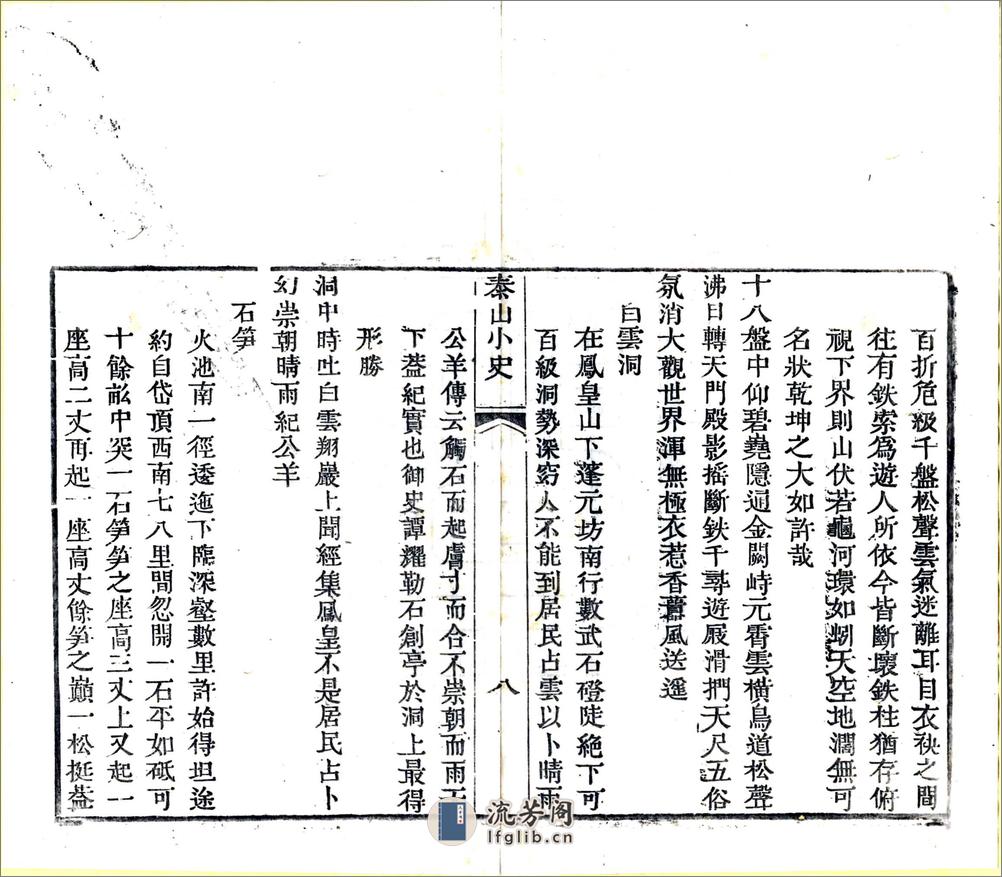 百折危級千盤松聲雲氣迷離耳目衣袂之間
往有鉄索為遊人所依今皆斷壞鉄柱猶存俯
視下界則山伏若龜河環如蚓天空地濶無可
名狀乾坤之大如許哉
十八盤中仰碧堯隱逼金闕峙元霄雲橫鳥道松聲
沸日轉天門殿影搖斷鉄千尋遊屐滑捫天尺五俗
氛消大觀世界渾無極衣惹香蘿風送遥
白雲洞
在鳳皇山下蓬元坊南行數武石磴陡絶下可
百級洞勢深窈人不能到居民占雲以卜晴雨
泰山小史
八
公羊傳云觸石而起膚寸而合不崇朝而雨天
下葢紀實也御史譚耀勒石創亭於洞上最得
形勝
洞中時吐白雲翔巖上聞經集鳳皇不是居民占卜
幻崇朝晴雨紀公羊
石笋
火池南一徑逶迤下臨深壑數里許始得坦途
約自岱頂西南七八里間忽開一石平如砥可
十餘畝中突一石笋笋之座高三丈上又起一
座高二丈再起一座高丈餘笋之巔一松挺葢
流芳阁
lfglib.cn